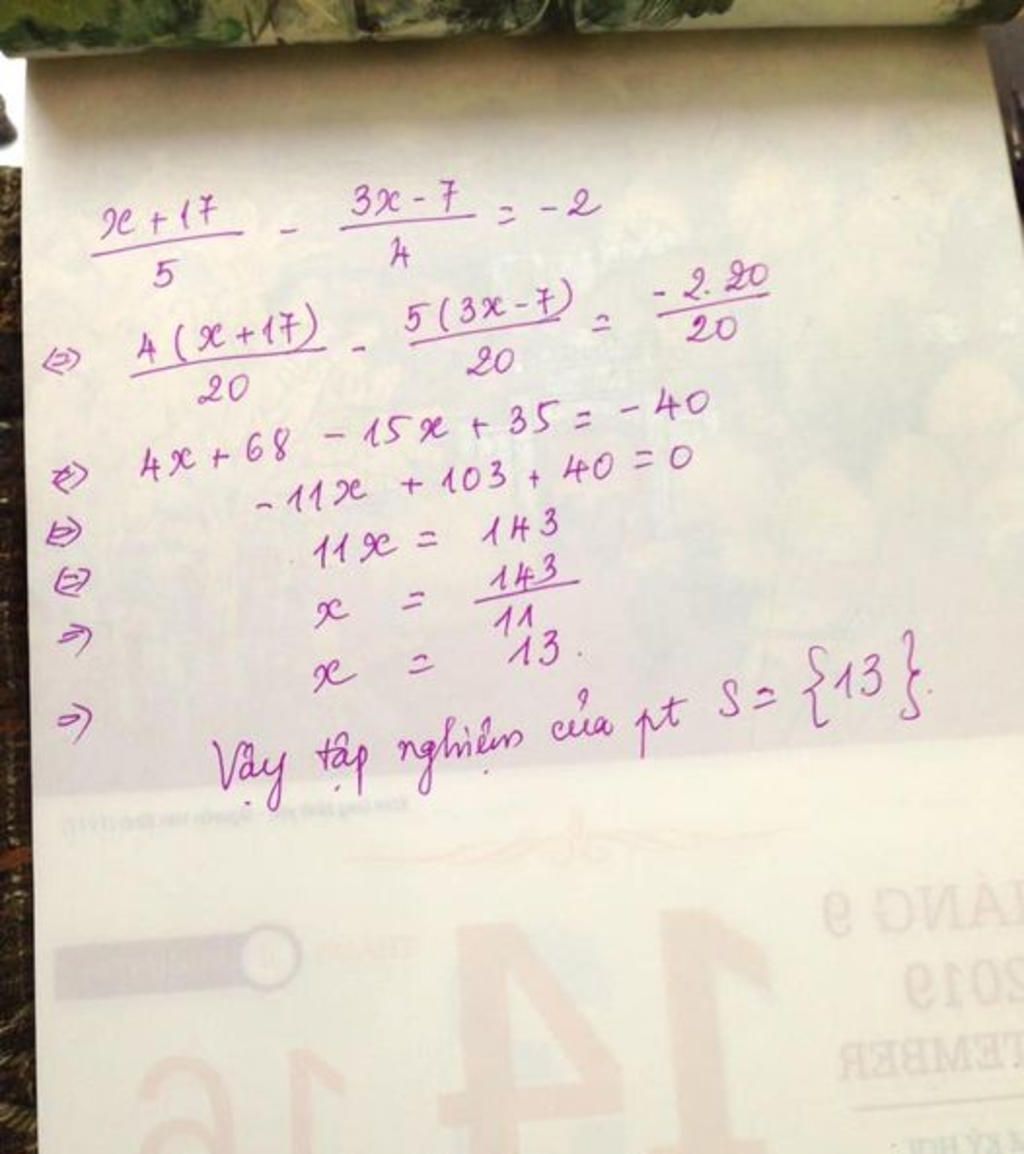 x + 17 / 5 - 3x - 7 / 4 = - 2
⇔ 4 (x + 17) / 20 - 5 (3x - 7) / 20 = - 2. 20 / 20
⇔ 4x + 68 - 15x + 35 = - 40
⇔ - 11x + 103 + 40 = 0
⇔ 11x = 143
⇒ x = 143 / 11
⇒ x = 13.
Vậy tập nghiệm của pt S = {13}.
THÁNG 9
2019
SEPTEMBER
14
16